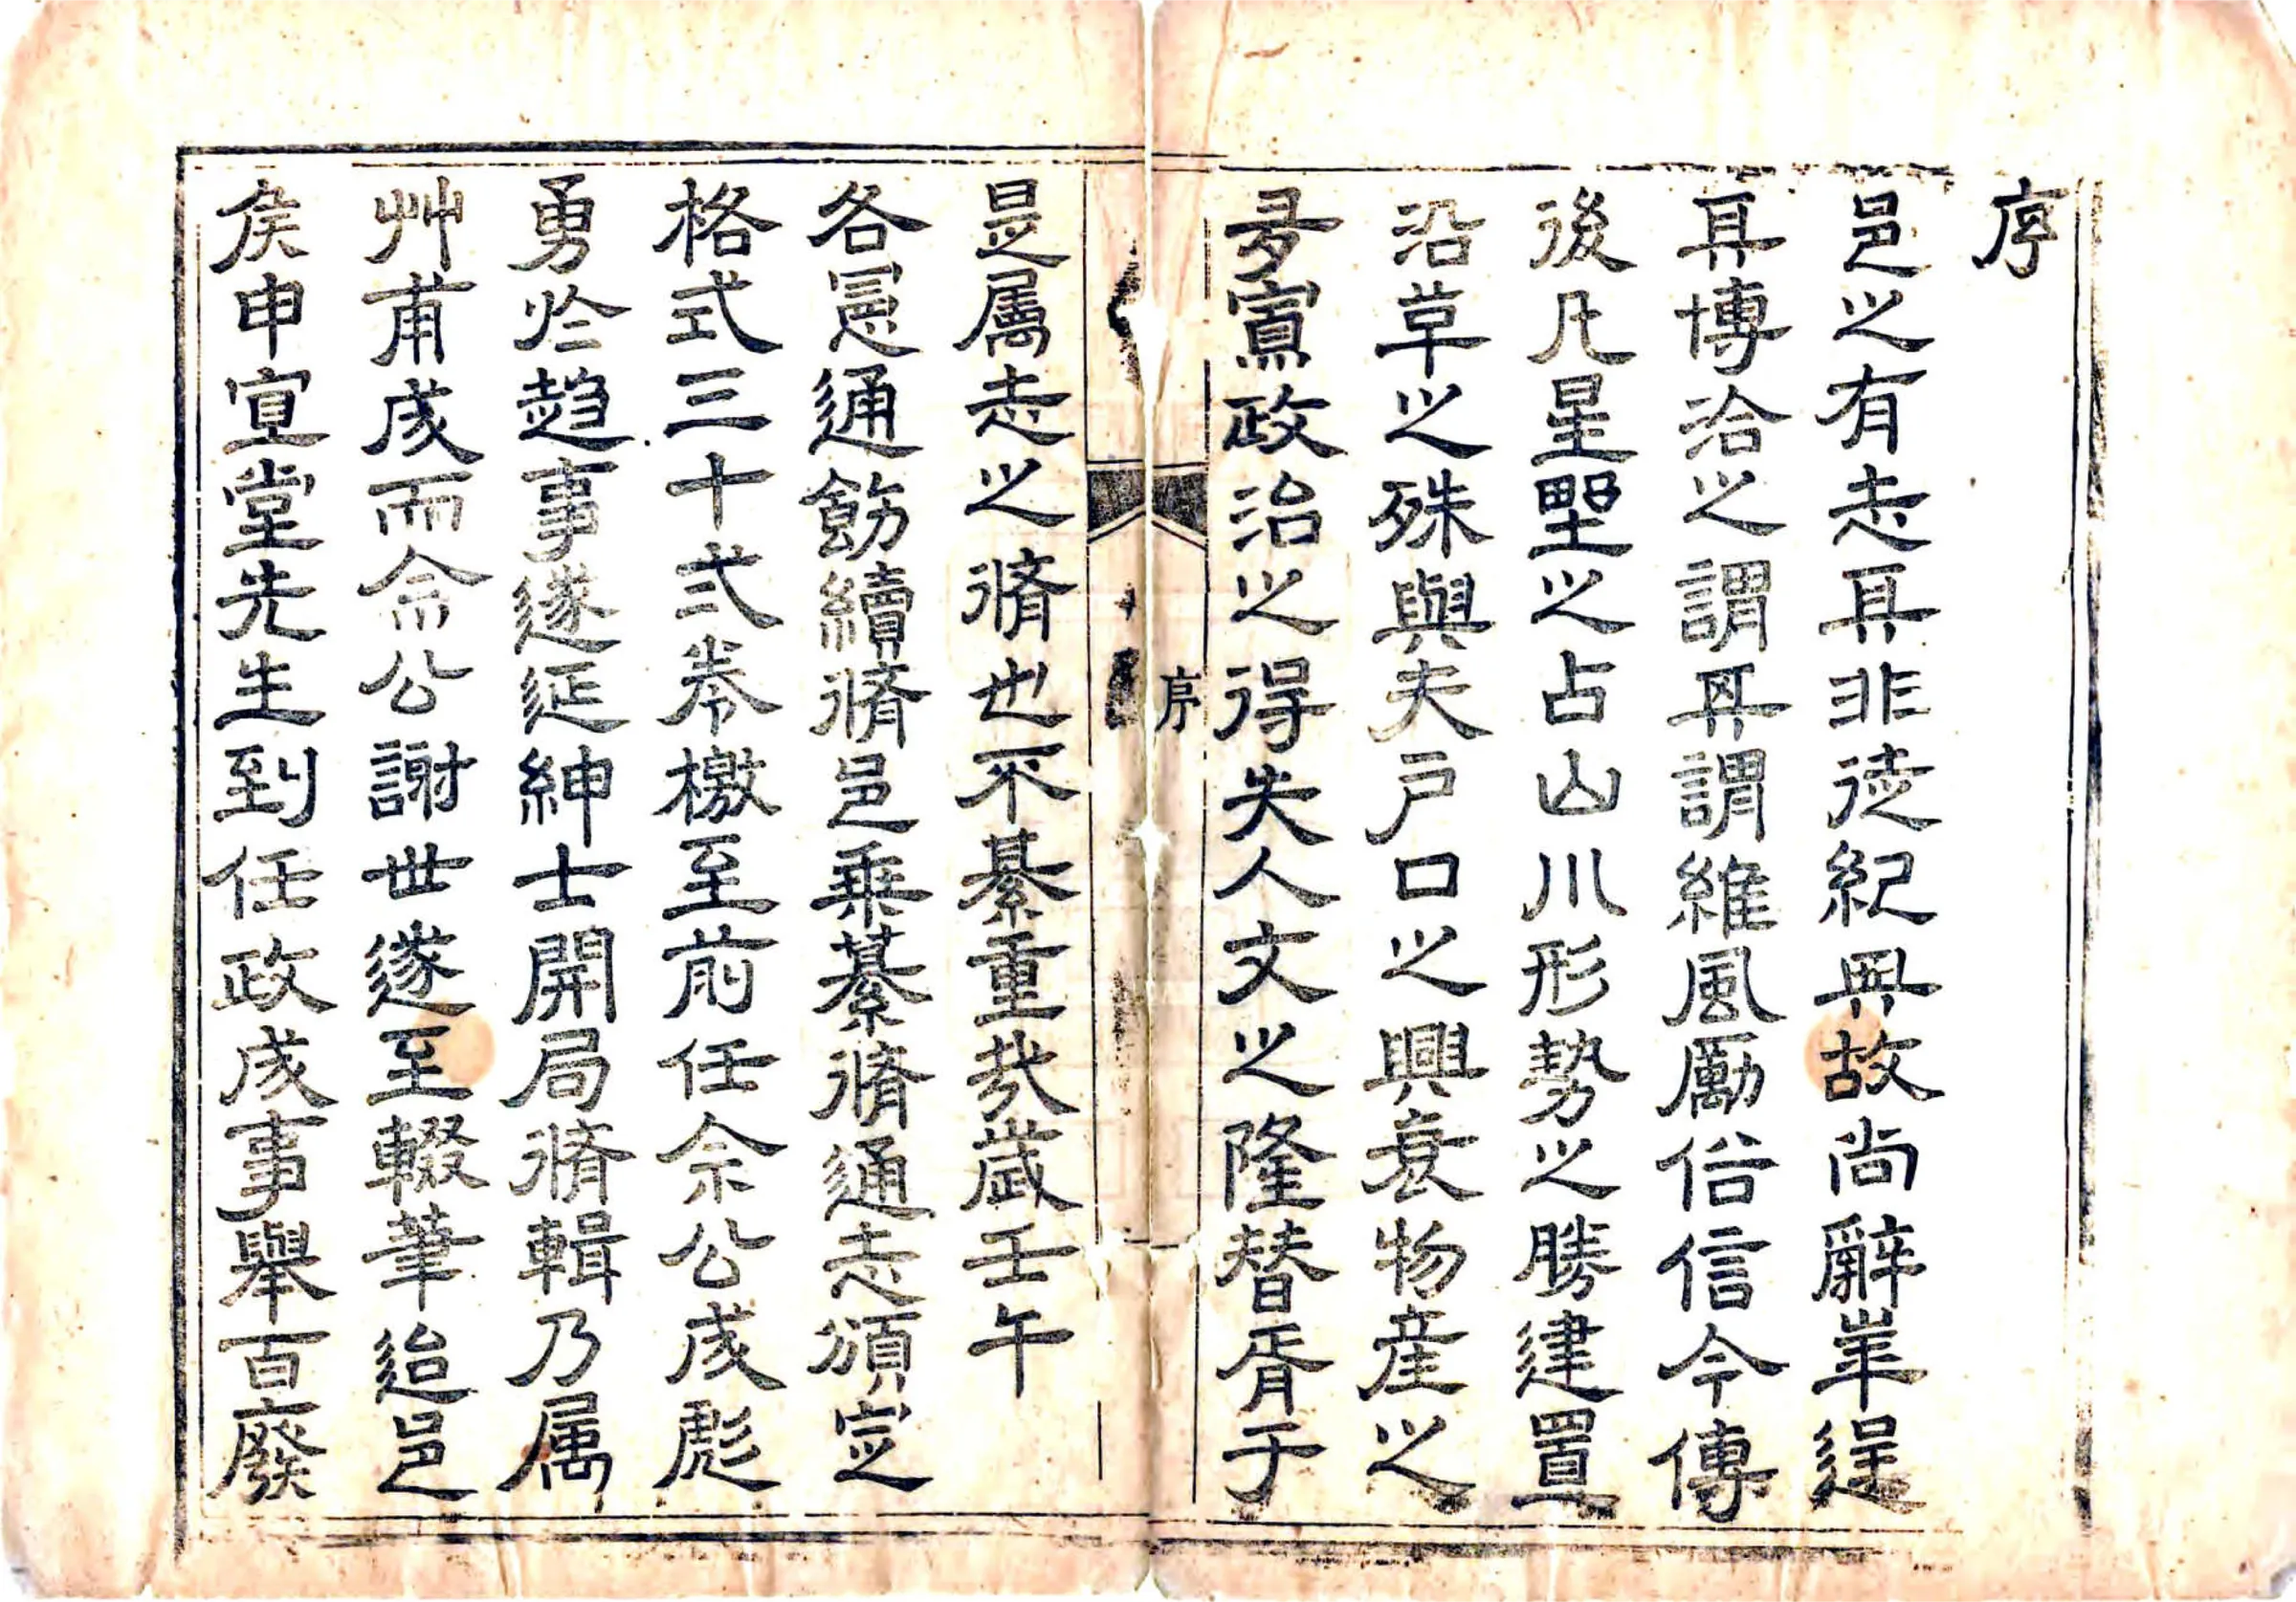 序
邑之有志其非徒紀典故尚辭華逞
其博洽之謂其謂維風勵俗信今傳
後凡星野之占山川形勢之勝建置
沿革之殊與夫戶口之興衰物産之
多寡政治之得失人文之隆替胥于
是屬志之脩也不綦重哉歲壬午
各憲通飭續脩邑乗綦脩通志頒定
格式三十弍卷檄至前任佘公成彪
勇於趨事遂延紳士開局脩輯乃属
艸甫成而佘公謝世遂至輟筆迨邑
侯申宣堂先生到任政成事舉百廢
序